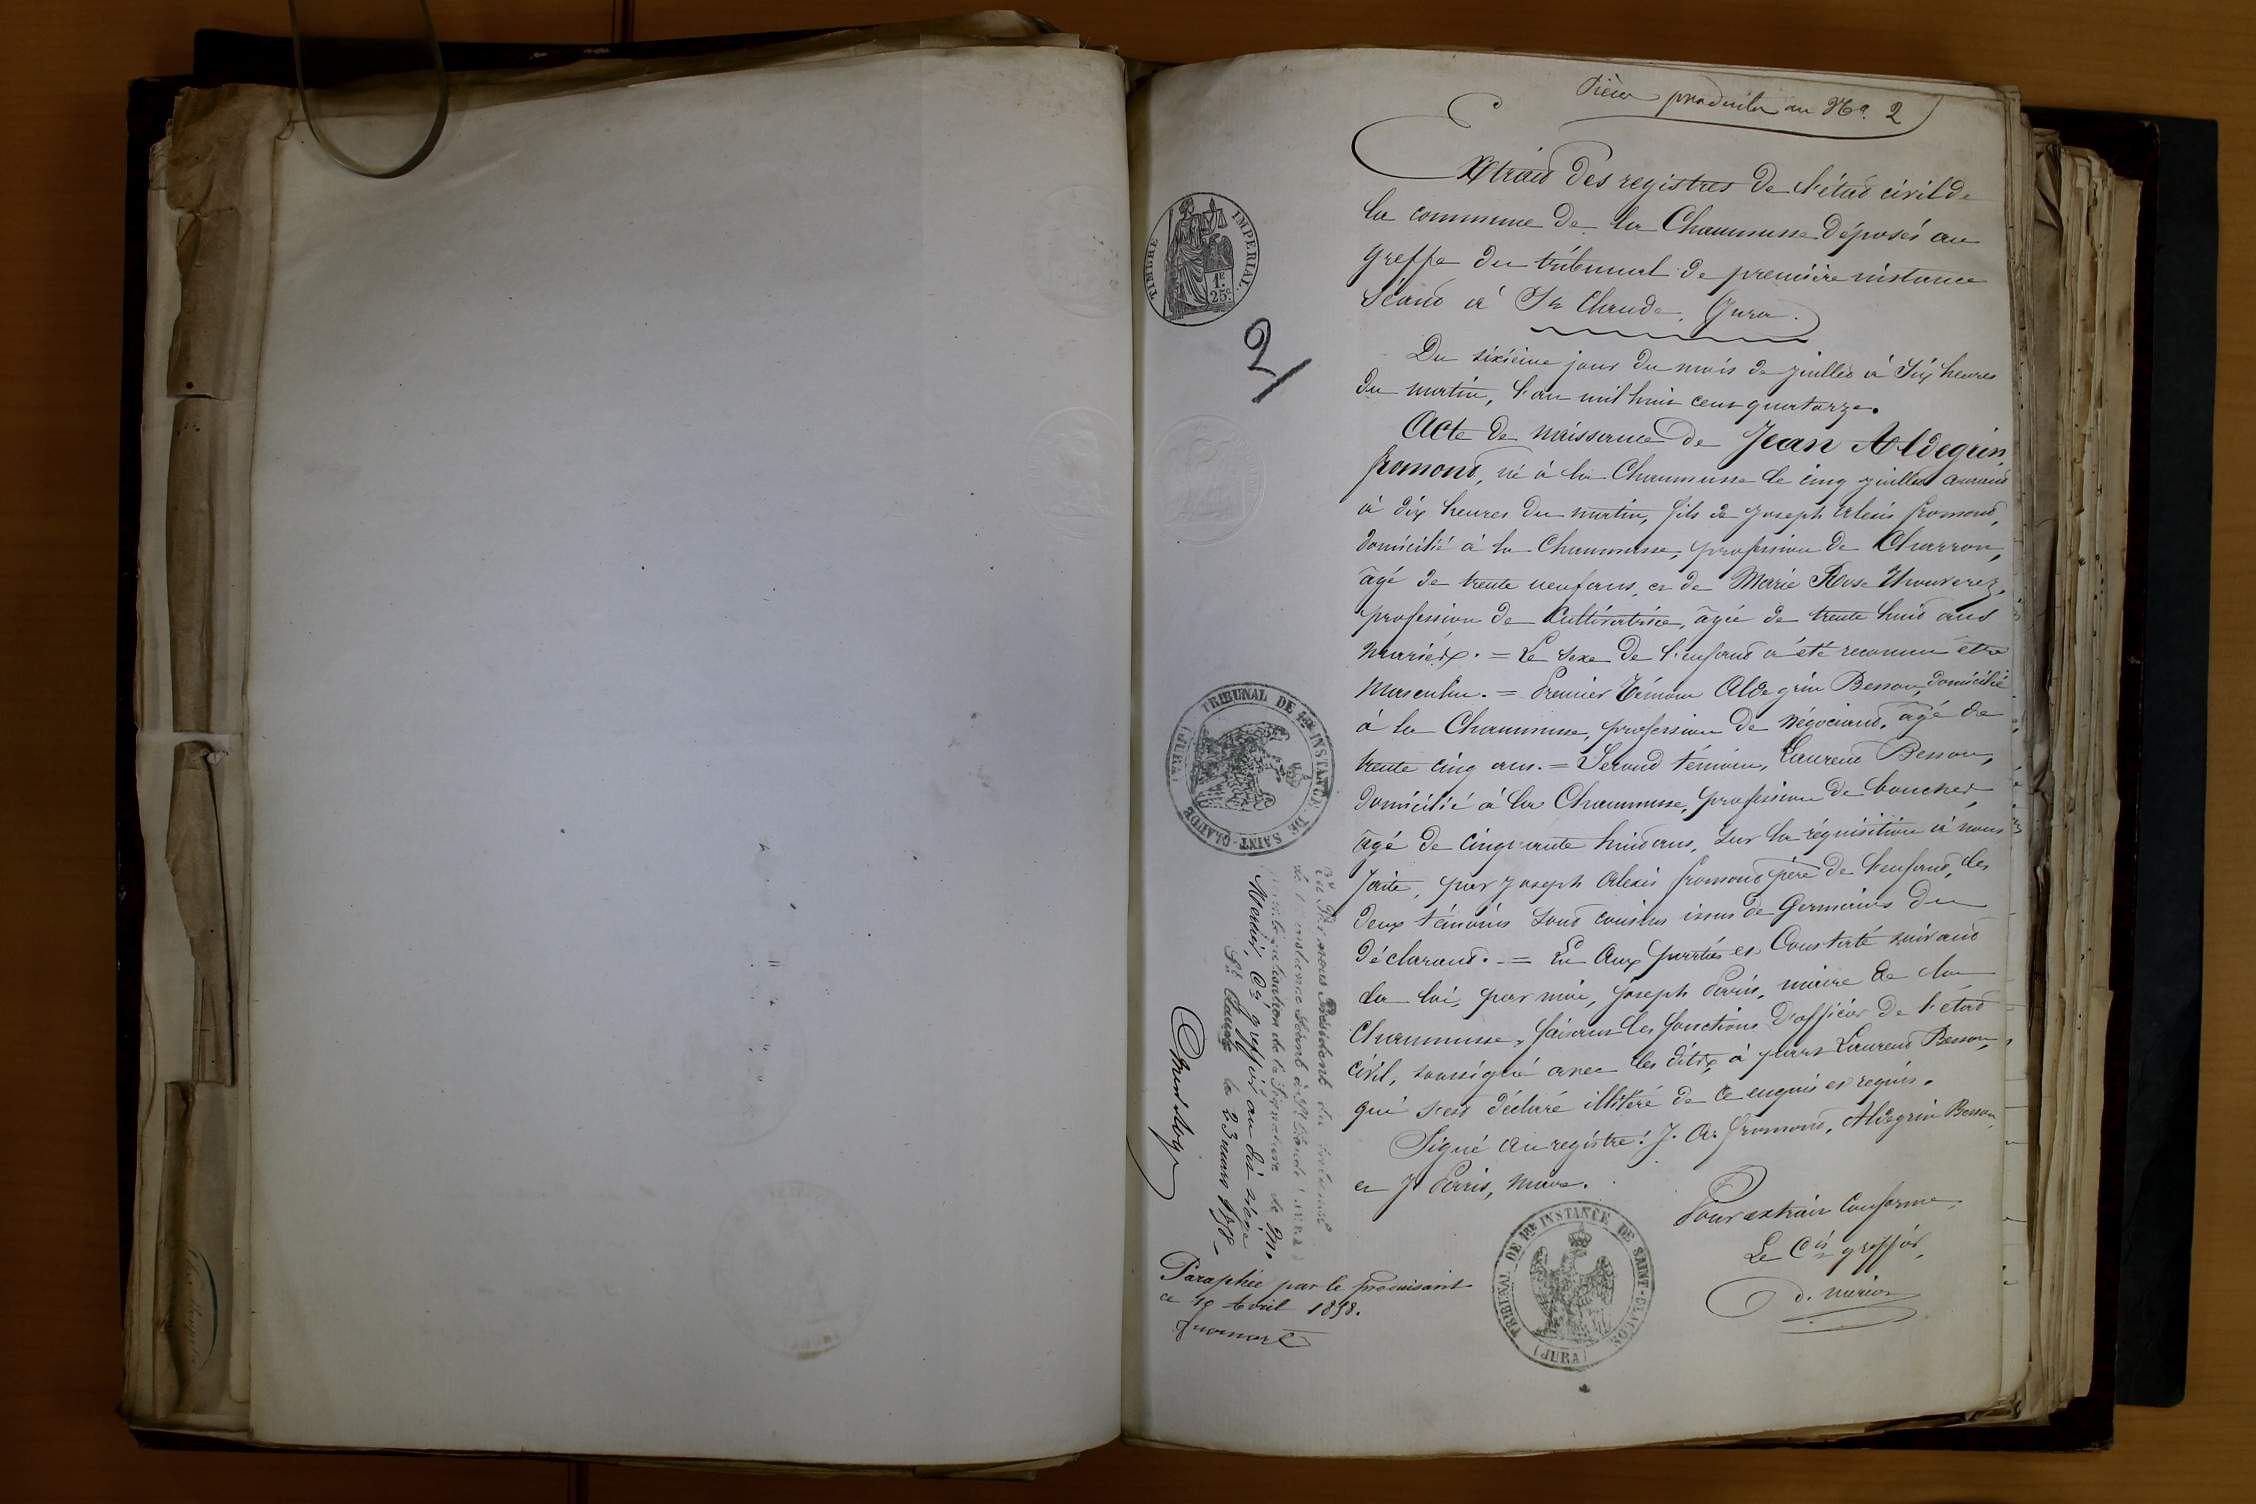 Pièce produite au No. 2
Extrait des registres de l'état civil de
la commune de la Chaumusse déposés au
greffe du tribunal de première instance
séant à St Claude. (Jura.)
TIMBRE IMPERIAL.
1F. 25c.
2
Du sixième jour du mois de juillet à six heures
du matin, l'an mil huit cent quatorze.
Acte de naissance de Jean Aldegrin
fromont, né à la Chaumusse le cinq juillet courant
à dix heures du matin, fils de Joseph Alexis fromont,
domicilié à la Chaumusse, profession de Charron,
âgé de trente neuf ans, et de Marie Rose Thouverez,
profession de Cultivatrice, âgée de trente huit ans
mariés. = Le sexe de l'enfant a été reconnu être
Masculin. = Premier témoin Aldegrin Besson, domicilié
à la Chaumusse, profession de négociant, âgé de
trente cinq ans. = Second témoin, Laurent Besson,
domicilié à la Chaumusse, profession de boucher,
âgé de cinquante huit ans, sur la réquisition à nous
faite, par Joseph Alexis fromont père de l'enfant, les
deux témoins sont cousins issus de Germains du
déclarant. = Lu aux parties et Constaté suivant
la loi, par moi, Joseph Perris, maire de la
Chaumusse, faisant les fonctions d'officier de l'état
civil, soussigné avec les dits, à part Laurent Besson,
qui s'est déclaré illitéré de ce enquis et requis.
Signé au registre: J. A. fromont, Aldegrin Besson,
et J. Perris, maire.
Pour extrait Conforme,
Le Cis greffier,
TRIBUNAL DE 1RE INSTANCE DE SAINT-CLAUDE (JURA)
TRIBUNAL DE 1RE INSTANCE DE SAINT-CLAUDE (JURA)
Vu par nous Président du tribunal
de 1re instance Séant à St Claude (JURA)
pour légalisation de la Signature de Mr.
Cis greffier au dit siège
St Claude le 23 mars 1858
Paraphée par le produisant
ce 19 Avril 1858.
fromont